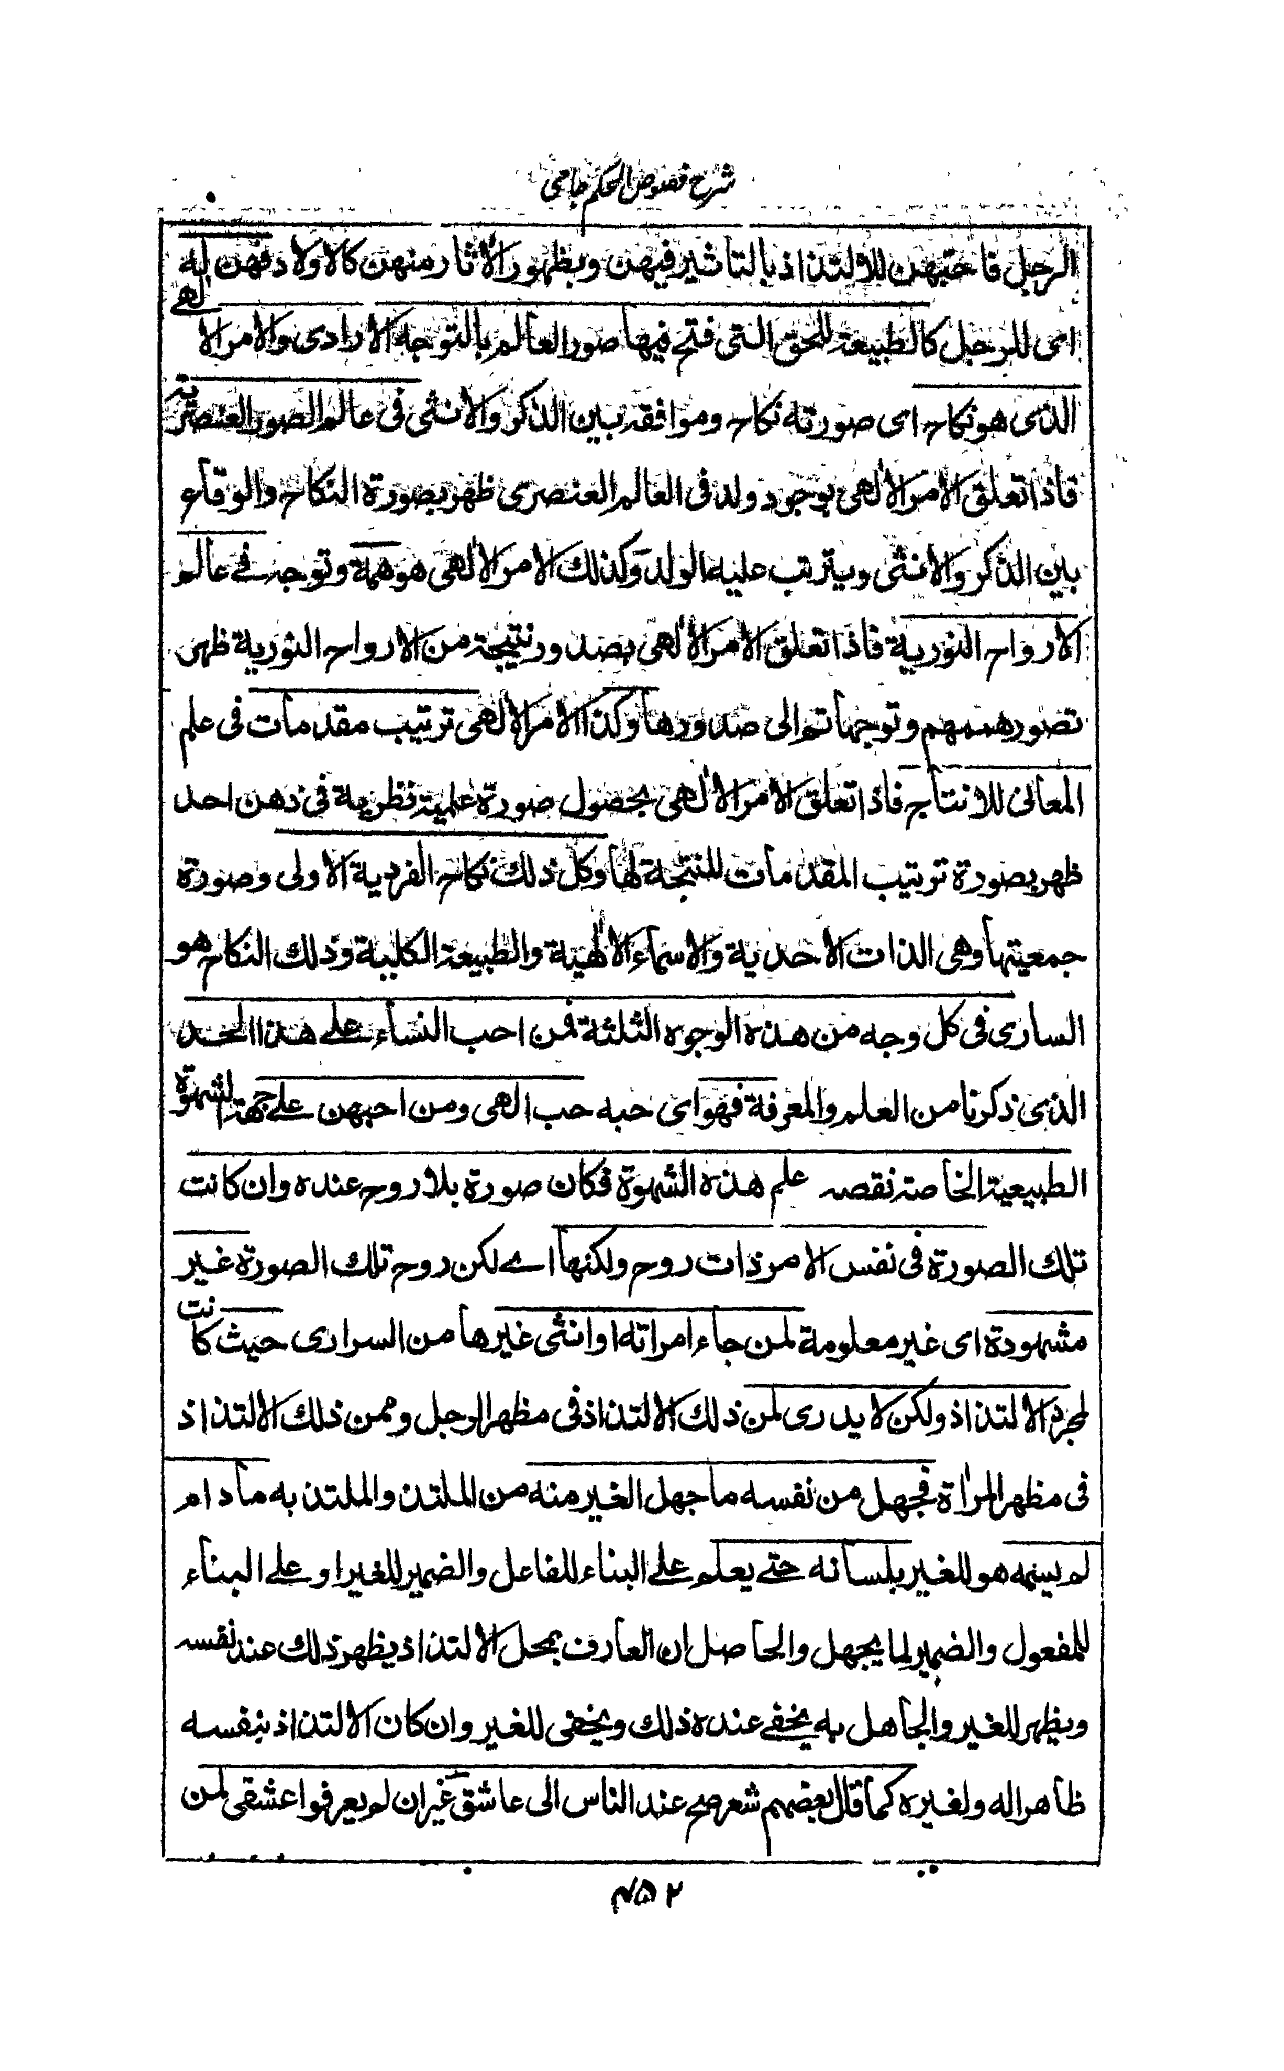 شرح فصوص الحكم جامی
الرجل فاحبهن للالتذاذ بالتأثير فيهن وبظهور الأثار منهن كالاولاد فهن له
اى للرجل كالطبيعة للحق التى فتح فيها صور العالم بالتوجه الأرادى والأمر الالهے
الذى هو نكاح اى صورته نكاح وموافقه بين الذكر والأنثى فى عالم الصور العنصرية
فأذا تعلق الأمر الألهى بوجود ولد فى العالم العنصرى ظهر بصورة النكاح والوقاع
بين الذكر والأنثى ويترتب عليه الولد وكذلك الامر الألهى هو همة وتوجه فے عالم
الأرواح النورية فأذا تعلق الأمر الألهى بصدور نتيجة من الأرواح النورية ظهر
تصور هممهم وتوجهاتهم الى صدورها وكذا الأمر الألهى ترتيب مقدمات فى علم
المعانى للانتاج فأذا تعلق الأمر الألهى بحصول صورة علمية نظرية فى ذهن احد
ظهر بصورة ترتيب المقدمات المنتجة لها وكل ذلك نكاح الفردية الأولى وصورة
جمعيتها وهى الذات الأحدية والأسماء الألهية والطبيعة الكلية وذلك النكاح هو
السارى فى كل وجه من هذه الوجوه الثلثة فمن احب النساء علے هذا الحد
الذى ذكرنا من العلم والمعرفة فهو اى حبه حب الهى ومن احبهن علے جهة الشهوة
الطبيعية الخاصة نقصه علم هذه الشهوة فكان صورة بلا روح عنده وان كانت
تلك الصورة فى نفس الامر ذات روح ولكنها اے لكن روح تلك الصورة غير
مشهودة اى غير معلومة لمن جاء امراته او انثى غيرها من السرارى حيث كانت
لمجرد الالتذاذ ولكن لا يدرى لمن ذلك الالتذاذ فى مظهر الرجل وممن ذلك الالتذاذ
فى مظهر المرأة فجهل من نفسه ما جهل الغير منه من الملتذ والملتذ به ما دام
لم يسمه هو للغير بلسانه حتے يعلم علے البناء للفاعل والضمير للغير او علے البناء
للمفعول والضمير لما يجهل والحاصل ان العارف بمحل الالتذاذ يظهر ذلك عند نفسه
ويظهر للغير والجاهل به يخفے عنده ذلك ويخفى للغير وان كان الالتذاذ بنفسه
ظاهرا له ولغيره كما قال بعضهم شعر صح عند الناس انى عاشق غير ان لم يعرفوا عشقى لمن
۴۵۲